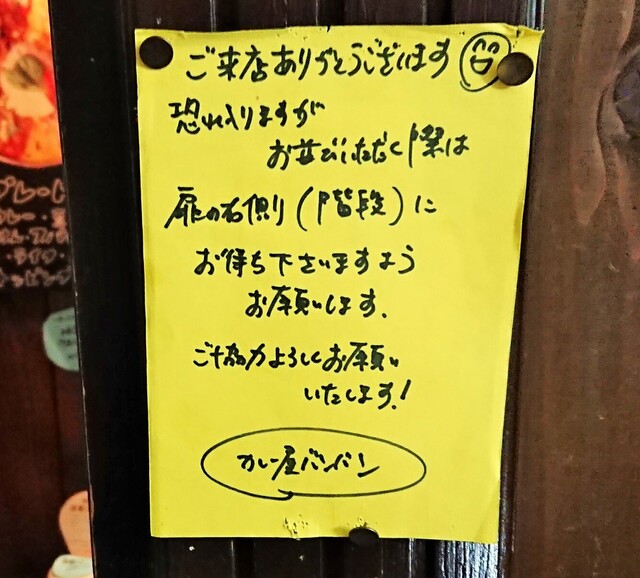 ご来店ありがとうございます
恐れ入りますが
お並びいただく際は
扉の右側(階段)に
お待ち下さいますよう
お願いします.
ご協力よろしくお願い
いたします!
カレー屋バンバン
プレート
カレー・
・ライタ・
トッピング